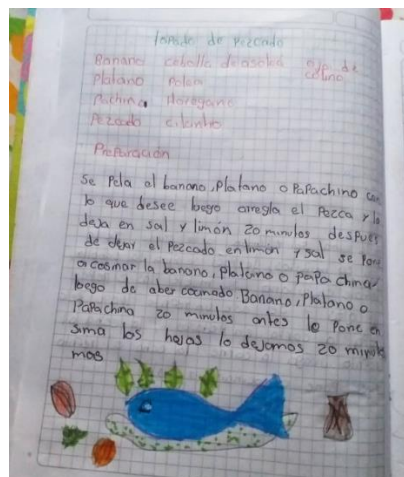 tapado de pezcado
Banano cebolla de asoled oja de
Platano Poleo celino
Pachina Horegano
Pezcado cilantro
Preparación
Se Pela el banano, Platano o PaPachino con
lo que desee luego arregla el Pezca y lo
deja en sal y limón 20 minutos despues
de dejar el Pezcado en limón y sal se Pone
a cosinar la banano, platano o papa china
luego de aber cocinado Banano, Platano o
PaPachina 20 minutos antes le Pone en
sima las hojas lo dejamos 20 minutos
mas